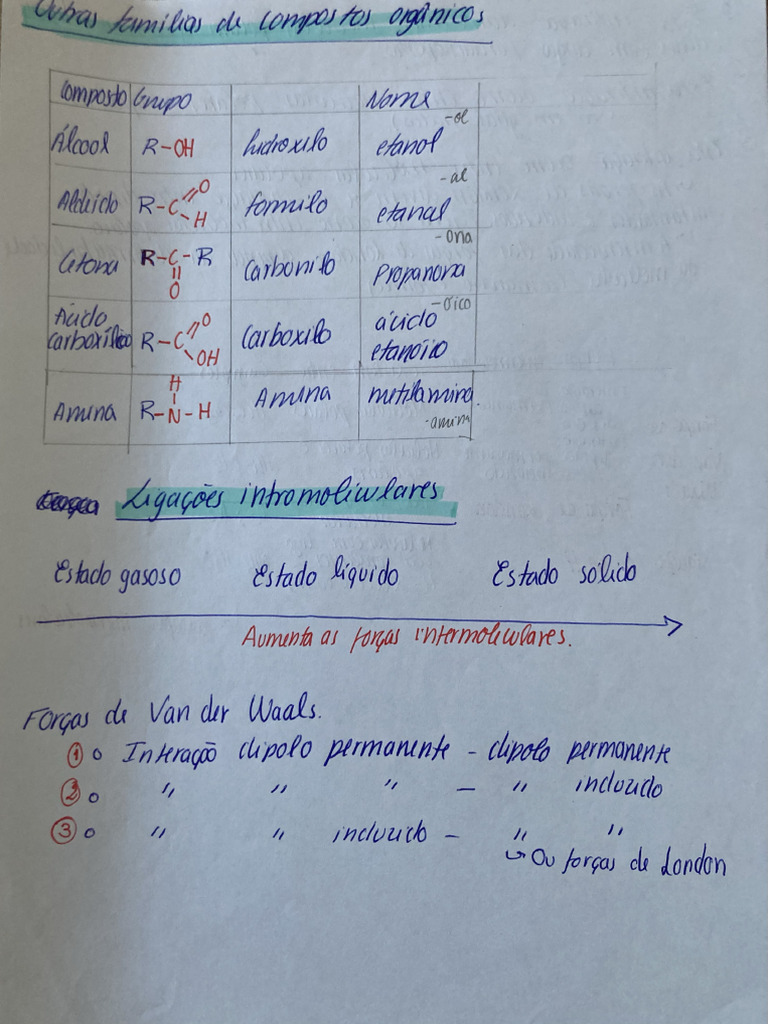 Outras famílias de compostos orgânicos
Composto Grupo Nome
Álcool R-OH hidroxilo etanol -ol
Aldeído R-C O H formilo etanal -al
Cetona R-C-R O Carbonilo Propanona -ona
Ácido carboxílico R-C O OH Carboxilo ácido etanóico -oico
Amina R-N-H H Amina metilamina. -amina
Ligações intromoliculares
Estado gasoso Estado líquido Estado sólido
Aumenta as forças intermoliculares.
Forças de Van der Waals.
① o Interação dipolo permanente - dipolo permanente
② o " " " - " induzido
③ o " " induzido - " "
↪ Ou forças de London